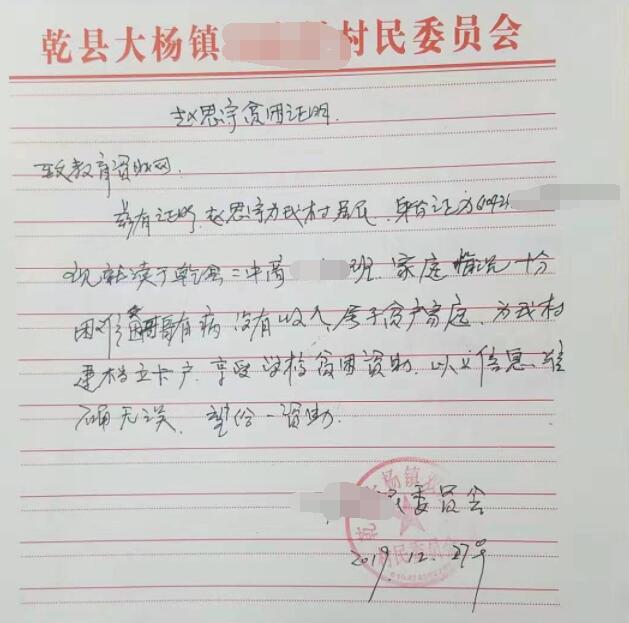 乾县大杨镇 村民委员会
赵思宇贫困证明.
致教育资助网.
兹有证明,赵思宇为我村居民,身份证为610424
现就读于乾县二中高 班 家庭情况十分
困难 哥哥有病 没有收入,属于贫户家庭,为我村
建档立卡户,享受学校贫困资助.以上信息准
确无误, 望给一资助.
委员会
2019.12.27号
大杨镇
村民委员会